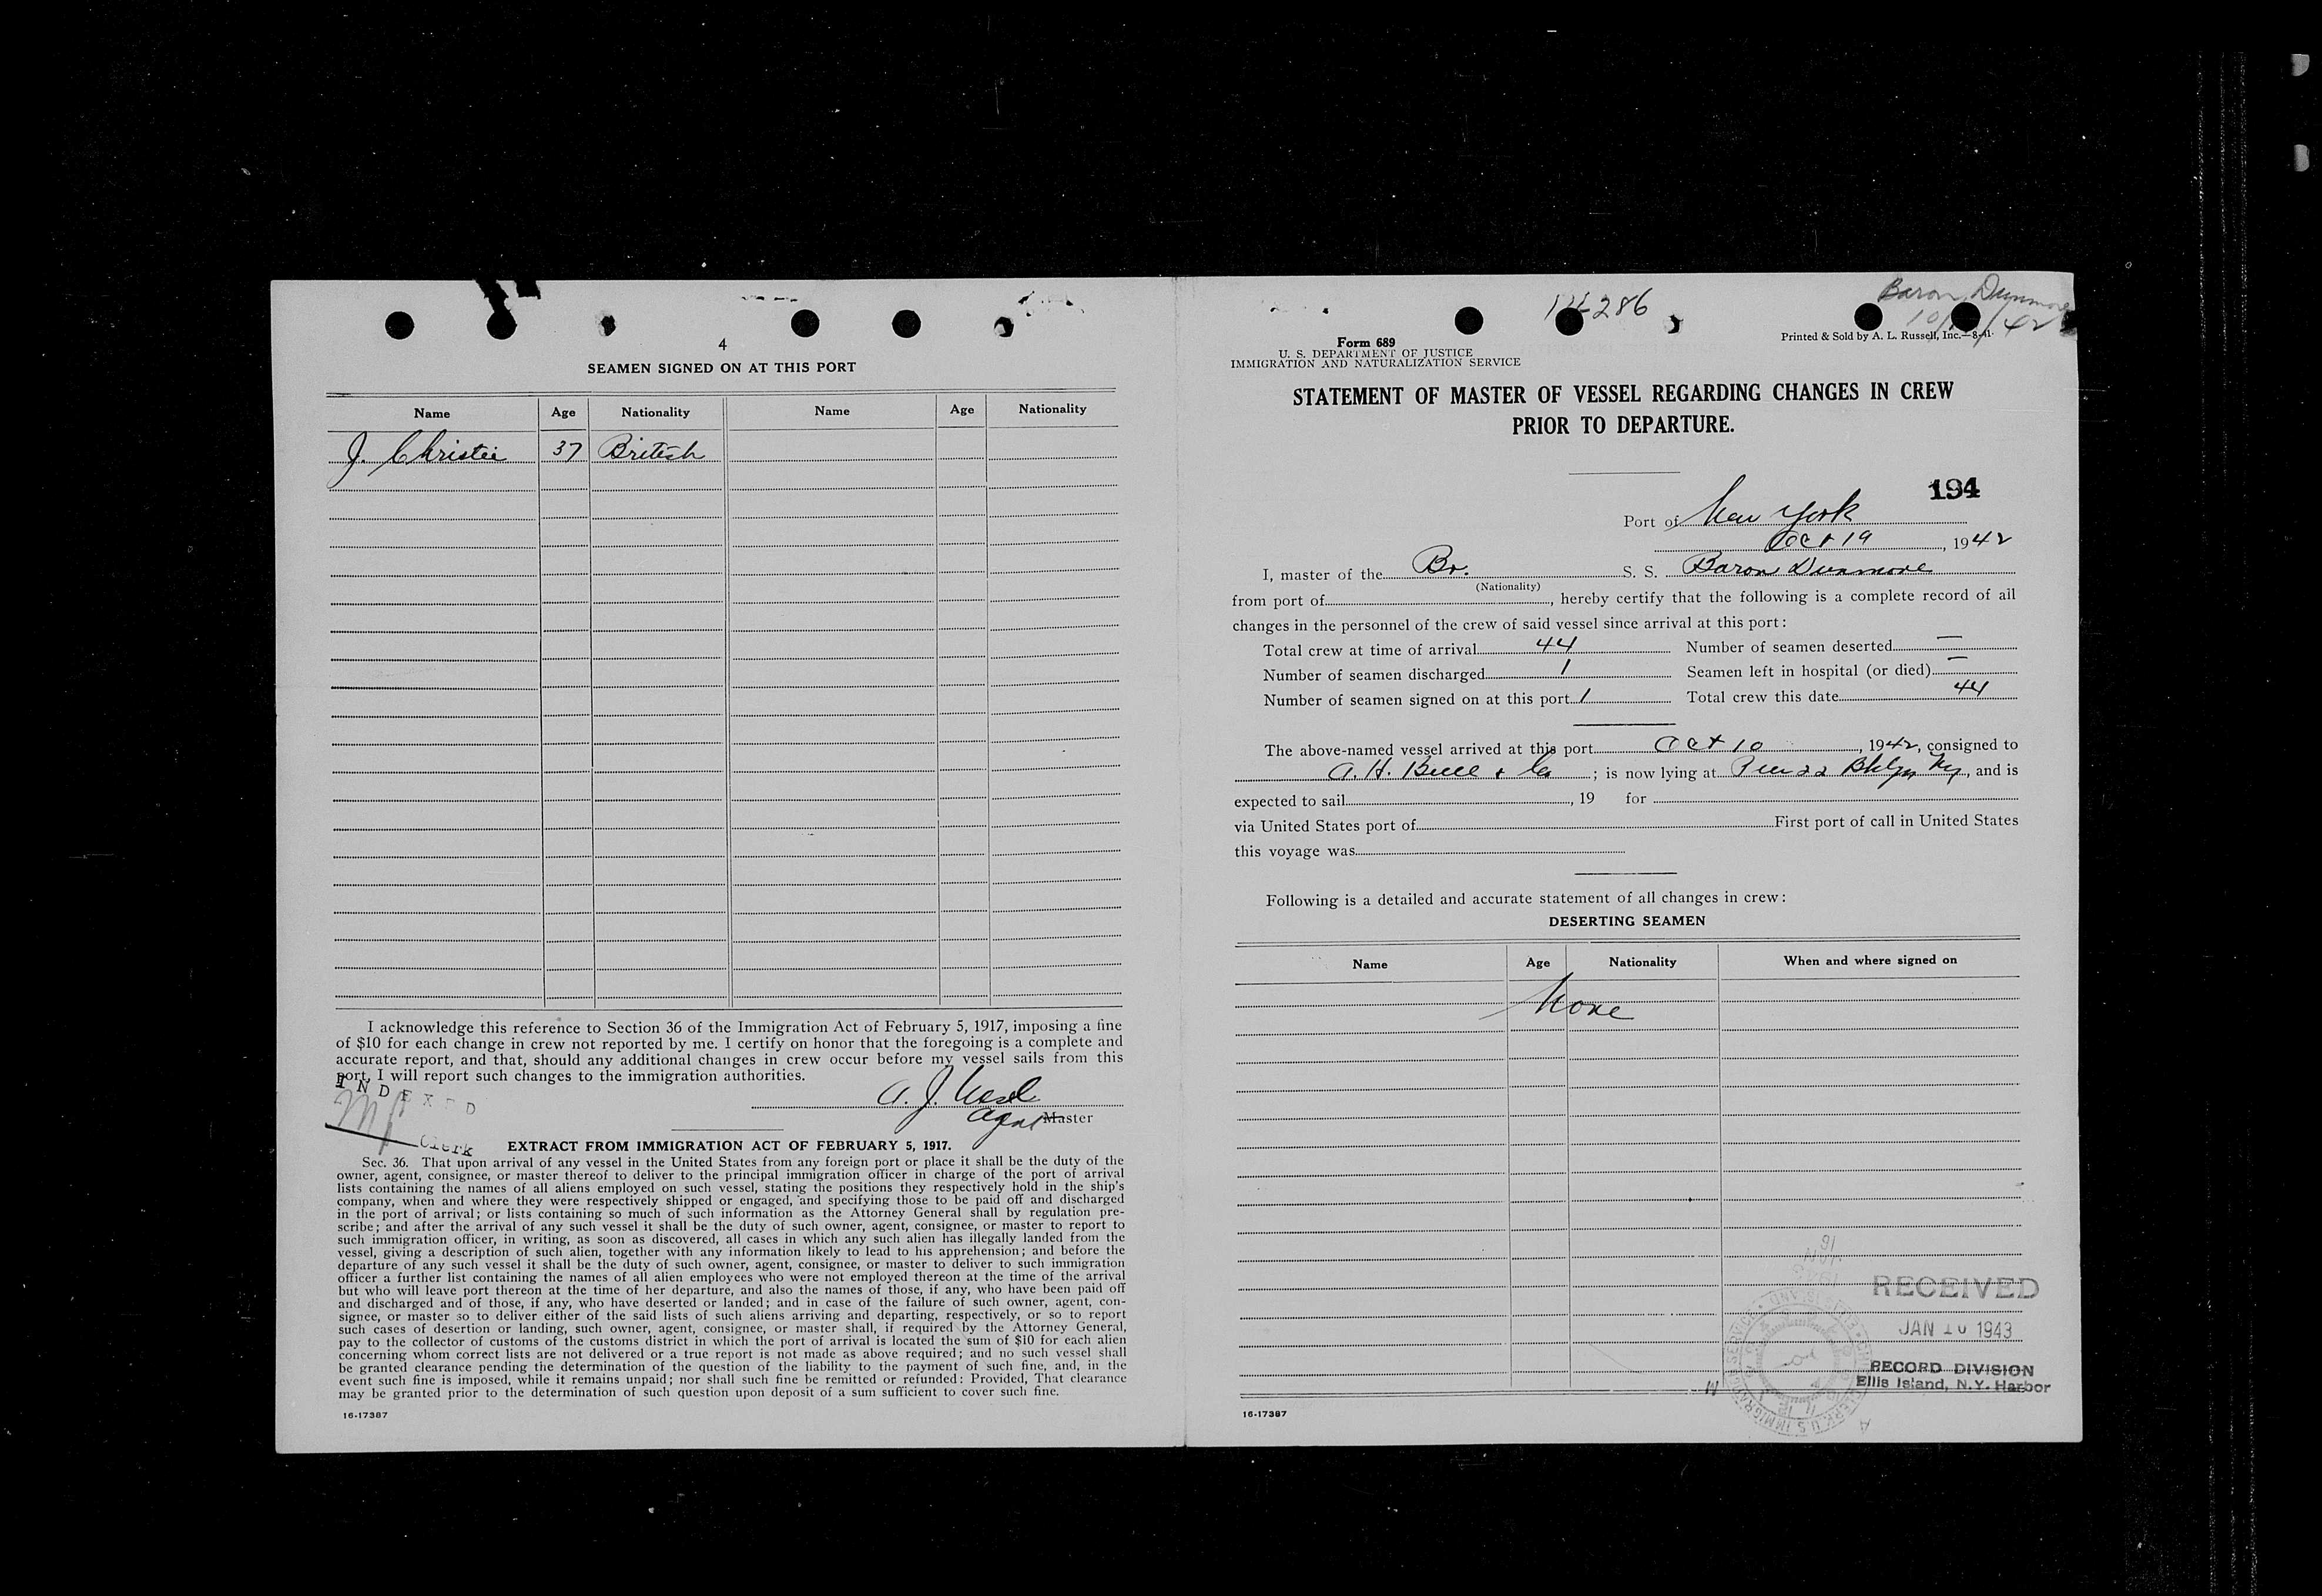 4
SEAMEN SIGNED ON AT THIS PORT
Name Age Nationality Name Age Nationality
J. Christie 37 British
I acknowledge this reference to Section 36 of the Immigration Act of February 5, 1917, imposing a fine
of $10 for each change in crew not reported by me. I certify on honor that the foregoing is a complete and
accurate report, and that, should any additional changes in crew occur before my vessel sails from this
port, I will report such changes to the immigration authorities.
INDEXED
A. J.
Agent Master
Clerk
EXTRACT FROM IMMIGRATION ACT OF FEBRUARY 5, 1917.
Sec. 36. That upon arrival of any vessel in the United States from any foreign port or place it shall be the duty of the
owner, agent, consignee, or master thereof to deliver to the principal immigration officer in charge of the port of arrival
lists containing the names of all aliens employed on such vessel, stating the positions they respectively hold in the ship's
company, when and where they were respectively shipped or engaged, and specifying those to be paid off and discharged
in the port of arrival; or lists containing so much of such information as the Attorney General shall by regulation pre-
scribe; and after the arrival of any such vessel it shall be the duty of such owner, agent, consignee, or master to report to
such immigration officer, in writing, as soon as discovered, all cases in which any such alien has illegally landed from the
vessel, giving a description of such alien, together with any information likely to lead to his apprehension; and before the
departure of any such vessel it shall be the duty of such owner, agent, consignee, or master to deliver to such immigration
officer a further list containing the names of all alien employees who were not employed thereon at the time of the arrival
but who will leave port thereon at the time of her departure, and also the names of those, if any, who have been paid off
and discharged and of those, if any, who have deserted or landed; and in case of the failure of such owner, agent, con-
signee, or master so to deliver either of the said lists of such aliens arriving and departing, respectively, or so to report
such cases of desertion or landing, such owner, agent, consignee, or master shall, if required by the Attorney General,
pay to the collector of customs of the customs district in which the port of arrival is located the sum of $10 for each alien
concerning whom correct lists are not delivered or a true report is not made as above required; and no such vessel shall
be granted clearance pending the determination of the question of the liability to the payment of such fine, and, in the
event such fine is imposed, while it remains unpaid; nor shall such fine be remitted or refunded: Provided, That clearance
may be granted prior to the determination of such question upon deposit of a sum sufficient to cover such fine.
16-17387
286
Baron Dunmore
Form 689
U. S. DEPARTMENT OF JUSTICE
IMMIGRATION AND NATURALIZATION SERVICE
Printed & Sold by A. L. Russell, Inc.—8-41
STATEMENT OF MASTER OF VESSEL REGARDING CHANGES IN CREW
PRIOR TO DEPARTURE.
194
Port of New York
Oct 19, 1942
I, master of the Br. S. S. Baron Dunmore
(Nationality)
from port of, hereby certify that the following is a complete record of all
changes in the personnel of the crew of said vessel since arrival at this port:
Total crew at time of arrival 44 Number of seamen deserted —
Number of seamen discharged 1 Seamen left in hospital (or died) —
Number of seamen signed on at this port 1 Total crew this date 44
The above-named vessel arrived at this port Oct 10, 1942, consigned to
A. H. Bull & Co; is now lying at Pier 22 Bklyn Ny, and is
expected to sail, 19 for
via United States port of First port of call in United States
this voyage was
Following is a detailed and accurate statement of all changes in crew:
DESERTING SEAMEN
Name Age Nationality When and where signed on
None
RECEIVED
JAN 1943
RECORD DIVISION
Ellis Island, N.Y. Harbor
16-17387